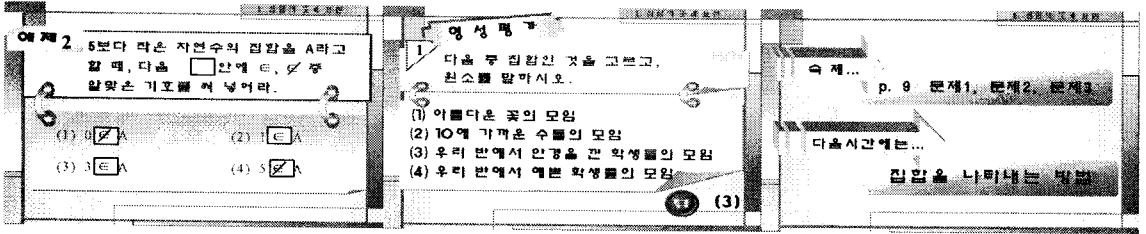 예제 2
5보다 작은 자연수의 집합을 A라고
할 때, 다음 □안에 ∈, ∉ 중
알맞은 기호를 써 넣어라.
(1) 0 ∉ A
(2) 1 ∈ A
(3) 3 ∈ A
(4) 5 ∉ A
형성평가
1
다음 중 집합인 것을 고르고,
원소를 말하시오.
(1) 아름다운 꽃의 모임
(2) 10에 가까운 수들의 모임
(3) 우리 반에서 안경을 낀 학생들의 모임
(4) 우리 반에서 예쁜 학생들의 모임
(3)
숙제...
p. 9 문제1, 문제2, 문제3
다음시간에는...
집합을 나타내는 방법